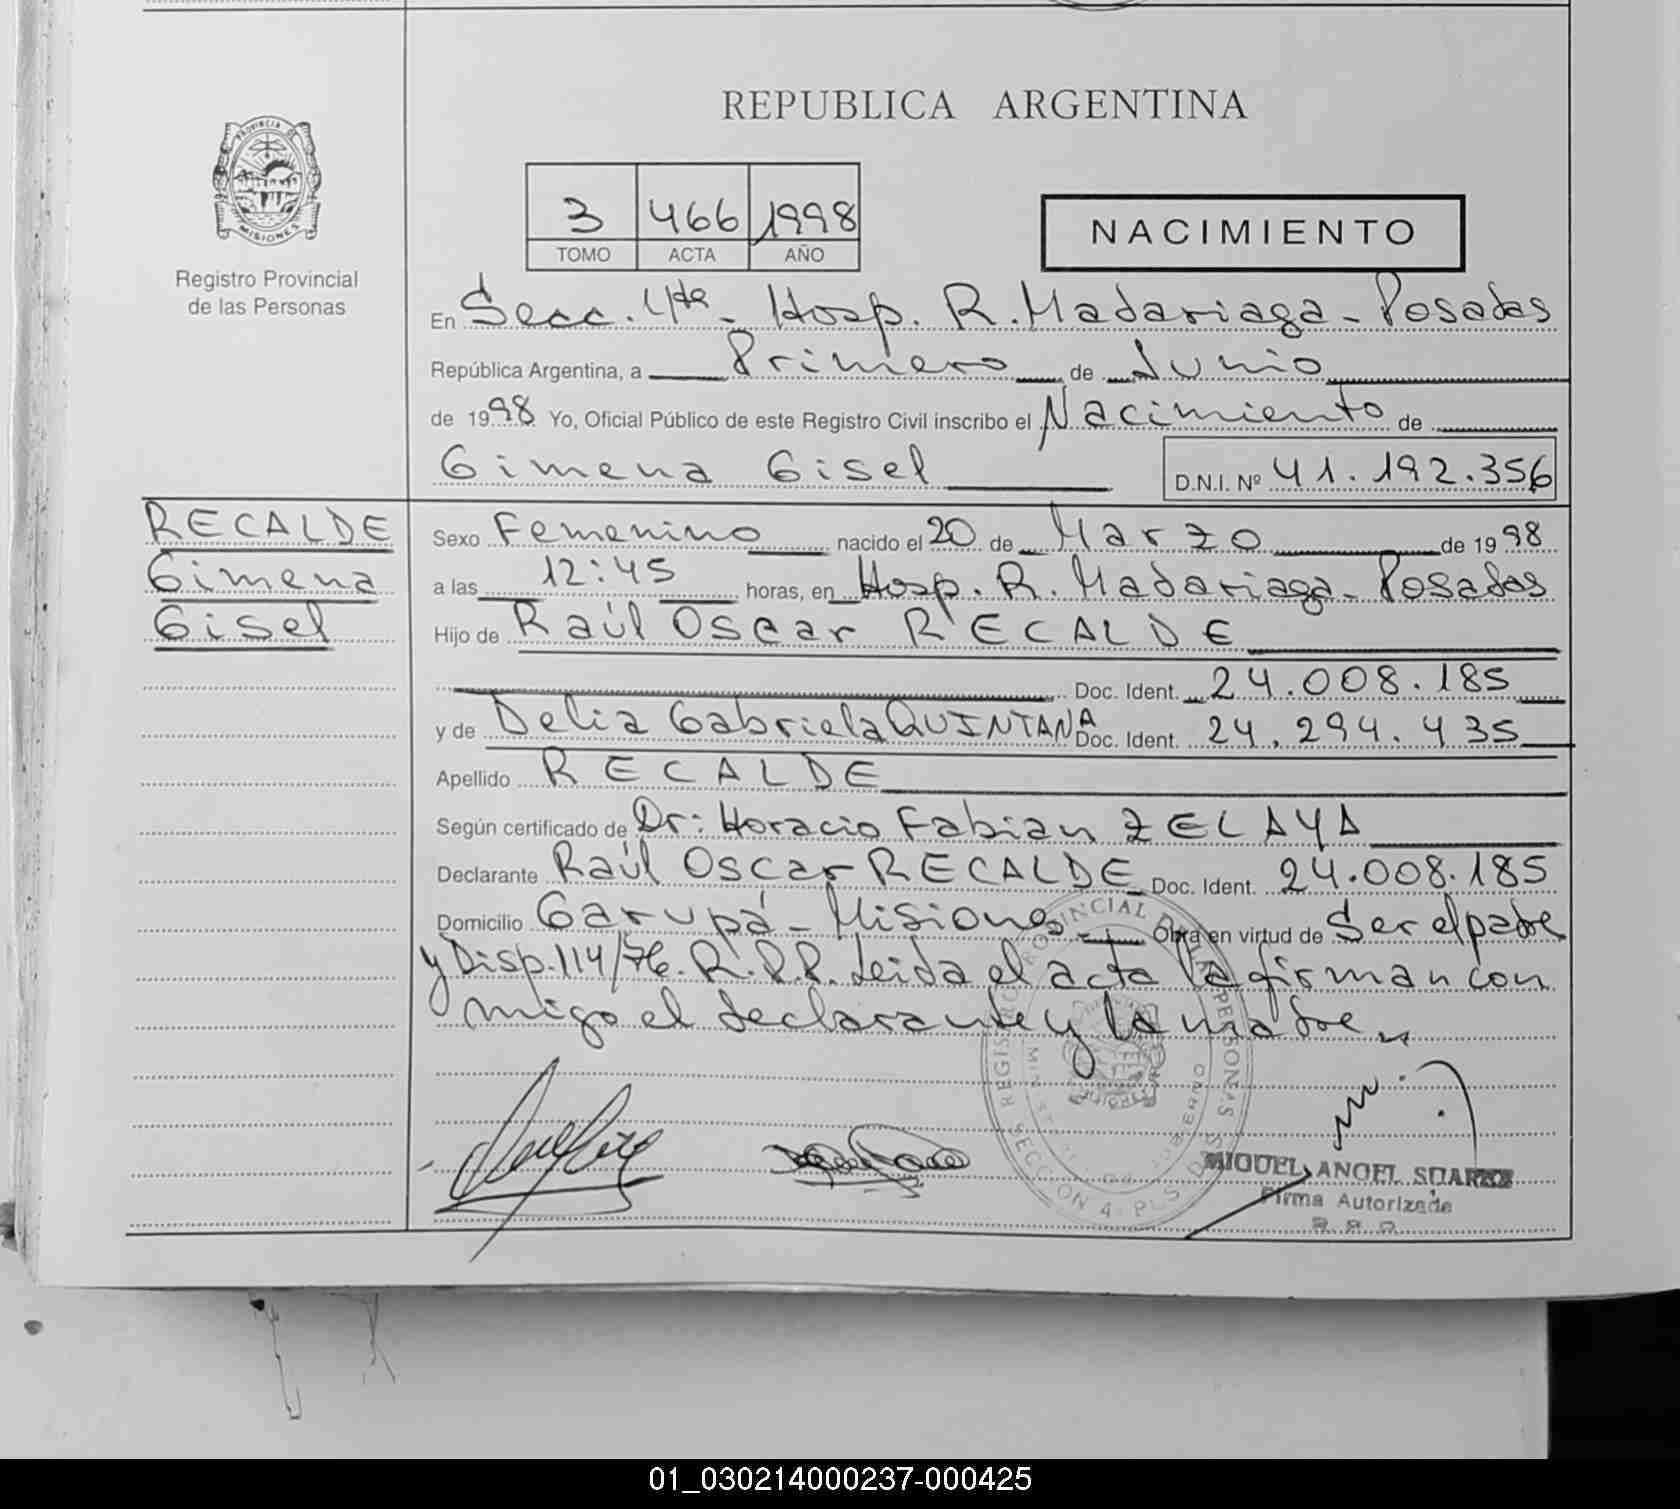 REPUBLICA ARGENTINA
PROVINCIA DE MISIONES
Registro Provincial
de las Personas
3 466 1998
TOMO ACTA AÑO
NACIMIENTO
En Secc. 4ta - Hosp. R. Madariaga - Posadas
República Argentina, a Primero de Junio
de 1998 Yo, Oficial Público de este Registro Civil inscribo el Nacimiento de
Gimena Gisel D.N.I. Nº 41.192.356
RECALDE
Gimena
Gisel
Sexo Femenino nacido el 20 de Marzo de 1998
a las 12:45 horas, en Hosp. R. Madariaga - Posadas
Hijo de Raúl Oscar RECALDE
Doc. Ident. 24.008.185
y de Delia Gabriela QUINTANA Doc. Ident. 24.294.435
Apellido RECALDE
Según certificado de Dr: Horacio Fabian ZELAYA
Declarante Raúl Oscar RECALDE Doc. Ident. 24.008.185
Domicilio Garupá - Misiones - Obra en virtud de Ser el padre
y Disp. 114/76. R.P.P. Leida el acta la firman con
migo el declarante y la madre
MIGUEL ANGEL SUAREZ
Firma Autorizada
01_030214000237-000425